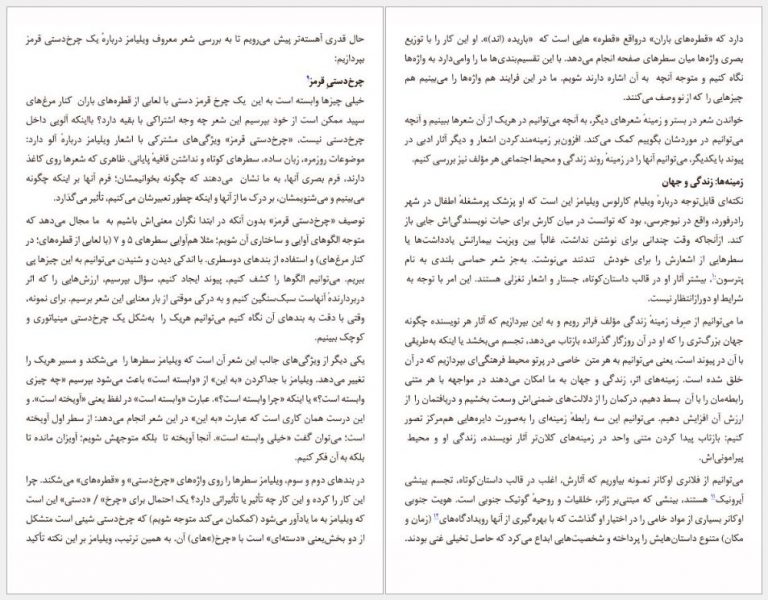 حال قدری آهسته‌تر پیش می‌رویم تا به بررسی شعر معروف ویلیامز دربارهٔ یک چرخ‌دستی قرمز
بپردازیم:
چرخ‌دستی قرمز
خیلی چیزها وابسته است به این یک چرخ قرمز دستی با لعابی از قطره‌های باران کنار مرغ‌های
سپید ممکن است از خود بپرسیم این شعر چه وجه اشتراکی با بقیه دارد؟ بااینکه آلویی داخل
چرخ‌دستی نیست، «چرخ‌دستی قرمز» ویژگی‌های مشترکی با اشعار ویلیامز دربارهٔ آلو دارد:
موضوعات روزمره، زبان ساده، سطرهای کوتاه و نداشتن قافیهٔ پایانی. ظاهری که شعرها روی کاغذ
دارند، فرم بصری آنها، به ما نشان می‌دهند که چگونه بخوانیمشان؛ فرم آنها بر اینکه چگونه
می‌بینیم و می‌شنویمشان، بر درک ما از آنها و اینکه چطور تعبیرشان می‌کنیم، تأثیر می‌گذارد.
توصیف «چرخ‌دستی قرمز» بدون آنکه در ابتدا نگران معنی‌اش باشیم به ما مجال می‌دهد که
متوجه الگوهای آوایی و ساختاری آن شویم؛ مثلا هم‌آوایی سطرهای ۵ و ۷ (با لعابی از قطره‌های؛ در
کنار مرغ‌های) و استفاده از بندهای دوسطری. با اندکی دیدن و شنیدن می‌توانیم به این چیزها پی
ببریم. می‌توانیم الگوها را کشف کنیم، پیوند ایجاد کنیم، سؤال بپرسیم، ارزش‌هایی را که اثر
دربردارندهٔ آنهاست سبک‌سنگین کنیم و به درکی موقتی از بار معنایی این شعر برسیم. برای نمونه،
وقتی با دقت به بندهای آن نگاه کنیم می‌توانیم هریک را به‌شکل یک چرخ‌دستی مینیاتوری و
کوچک ببینیم.
یکی دیگر از ویژگی‌های جالب این شعر آن است که ویلیامز سطرها را می‌شکند و مسیر هریک را
تغییر می‌دهد. ویلیامز با جداکردن «به این» از «وابسته است» باعث می‌شود بپرسیم «چه چیزی
وابسته است؟» یا اینکه «چرا وابسته است؟». عبارت «وابسته است» در لفظ یعنی «آویخته است». و
این درست همان کاری است که عبارت «به این» در این شعر انجام می‌دهد: از سطر اول آویخته
است؛ می‌توان گفت «خیلی وابسته است». آنجا آویخته تا بلکه متوجهش شویم؛ آویزان مانده تا
بلکه به آن فکر کنیم.
در بندهای دوم و سوم، ویلیامز سطرها را روی واژه‌های «چرخ‌دستی» و «قطره‌های» می‌شکند. چرا
این کار را کرده و این کار چه تأثیر یا تأثیراتی دارد؟ یک احتمال برای «چرخ» / «دستی» این است
که ویلیامز به ما یادآور می‌شود (کمکمان می‌کند متوجه شویم) که چرخ‌دستی شیئی است متشکل
از دو بخش‌یعنی «دسته‌ای» است با «چرخ(»های) آن. به همین ترتیب، ویلیامز بر این نکته تأکید
دارد که «قطره‌های باران» درواقع «قطره» هایی است که «باریده (اند)». او این کار را با توزیع
بصری واژه‌ها میان سطرهای صفحه انجام می‌دهد. با این تقسیم‌بندی‌ها ما را وامی‌دارد به واژه‌ها
نگاه کنیم و متوجه آنچه به آن اشاره دارند شویم. ما در این فرایند هم واژه‌ها را می‌بینیم هم
چیزهایی را که از نو وصف می‌کنند.
خواندن شعر در بستر و زمینهٔ شعرهای دیگر، به آنچه می‌توانیم در هریک از آن شعرها ببینیم و آنچه
می‌توانیم در موردشان بگوییم کمک می‌کند. افزون‌بر زمینه‌مندکردن اشعار و دیگر آثار ادبی در
پیوند با یکدیگر، می‌توانیم آنها را در زمینهٔ روند زندگی و محیط اجتماعی هر مؤلف نیز بررسی کنیم.
زمینه‌ها: زندگی و جهان
نکته‌ای قابل‌توجه دربارهٔ ویلیام کارلوس ویلیامز این است که او پزشک پرمشغلهٔ اطفال در شهر
رادرفورد، واقع در نیوجرسی، بود که توانست در میان کارش برای حیات نویسندگی‌اش جایی باز
کند. ازآنجاکه وقت چندانی برای نوشتن نداشت، غالباً بین ویزیت بیمارانش یادداشت‌ها یا
سطرهایی از اشعارش را برای خودش تندتند می‌نوشت. به‌جز شعر حماسی بلندی به نام
پترسون، بیشتر آثار او در قالب داستان‌کوتاه، جستار و اشعار تغزلی هستند. این امر با توجه به
شرایط او دورازانتظار نیست.
ما می‌توانیم از صِرف زمینهٔ زندگی مؤلف فراتر رویم و به این بپردازیم که آثار هر نویسنده چگونه
جهان بزرگ‌تری را که او در آن روزگار گذرانده بازتاب می‌دهد، تجسم می‌بخشد یا اینکه به‌طریقی
با آن در پیوند است. یعنی می‌توانیم به هر متن خاصی در پرتو محیط فرهنگی‌ای بپردازیم که در آن
خلق شده است. زمینه‌های اثر، زندگی و جهان به ما امکان می‌دهند در مواجهه با هر متنی
رابطه‌مان را با آن بسط دهیم، درکمان را از دلالت‌های ضمنی‌اش وسعت بخشیم و دریافتمان را از
ارزش آن افزایش دهیم. می‌توانیم این سه رابطهٔ زمینه‌ای را به‌صورت دایره‌هایی هم‌مرکز تصور
کنیم: بازتاب پیدا کردن متنی واحد در زمینه‌های کلان‌تر آثار نویسنده، زندگی او و محیط
پیرامونی‌اش.
می‌توانیم از فلانری اوکانر نمونه بیاوریم که آثارش، اغلب در قالب داستان‌کوتاه، تجسم بینشی
آیرونیک هستند، بینشی که مبتنی‌بر ژانر، خلقیات و روحیهٔ گوتیک جنوبی است. هویت جنوبی
اوکانر بسیاری از مواد خامی را در اختیار او گذاشت که با بهره‌گیری از آنها رویدادگاه‌های (زمان و
مکان) متنوع داستان‌هایش را پرداخته و شخصیت‌هایی ابداع می‌کرد که حاصل تخیلی غنی بودند.